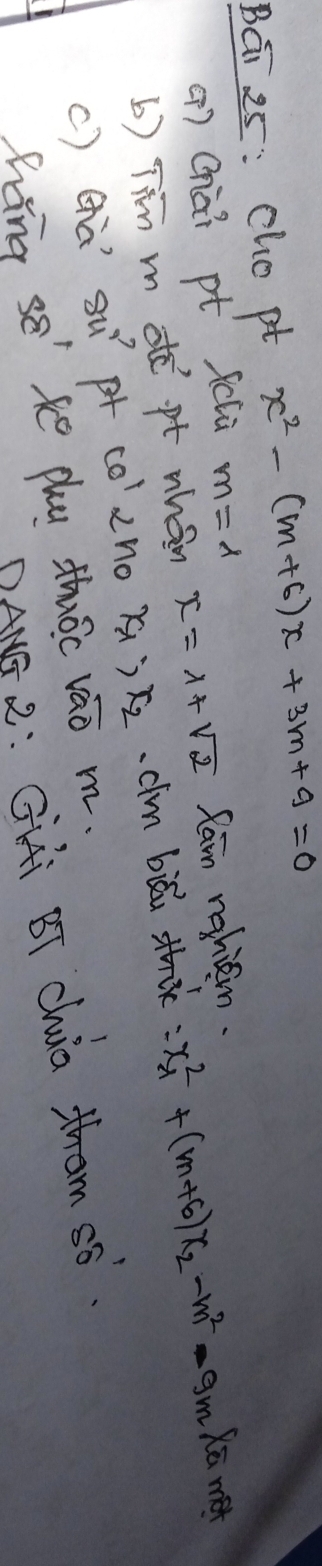 Bài 25: Cho pt x² - (m+6)x + 3m + 9 = 0
a) Giải pt khi m = 1
b) Tìm m để pt nhận x = 1 + √2 làm nghiệm.
c) Giả sử pt có 2 no x₁; x₂. cm biểu thức: x₁² + (m+6)x₂ - m² - 9m là một
hằng số ko phụ thuộc vào m.
DẠNG 2: GIẢI BT chứa tham số.